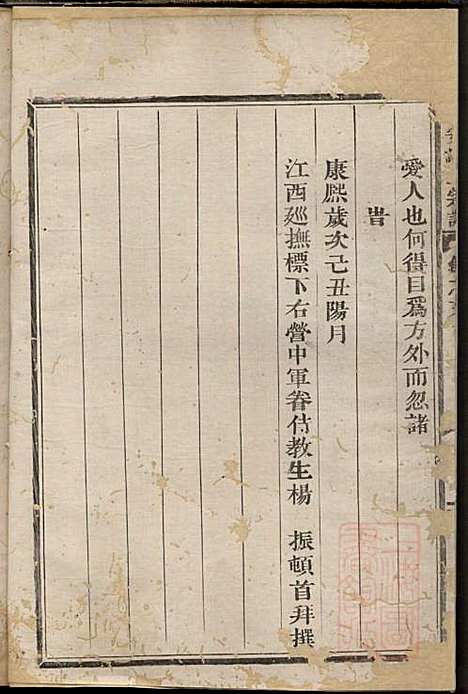 愛人也何得目爲方外而忽諸
旹
康熙歲次己丑陽月
江西廵撫標下右營中軍眷侍教生楊 振頓首拜撰